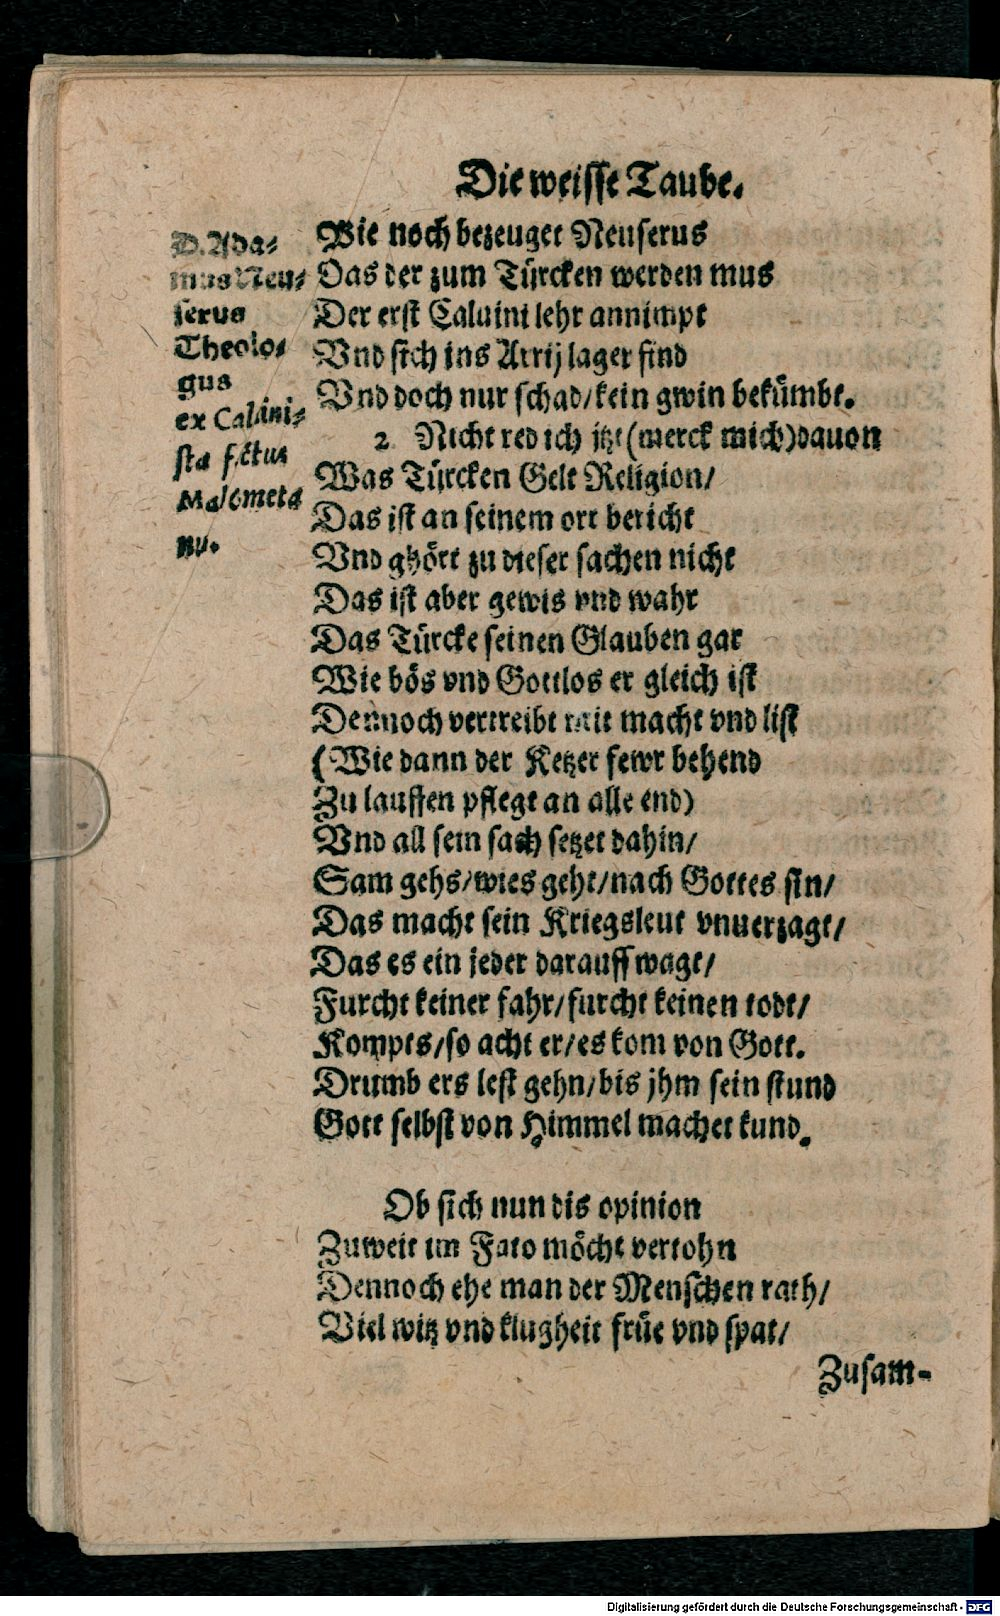 Die weisse Taube.
D. Ada-
mus Neu-
serus
Theolo-
gus
ex Caluini-
sta factus
Mahometa
nu.
Wie noch bezeuget Neuserus
Das der zum Türcken werden mus
Der erst Caluini lehr annimpt
Vnd sich ins Arrij lager find
Vnd doch nur schad/kein gwin bekümbt.
2 Nicht red ich jtzt (merck mich) dauon
Was Türcken Gelt Religion/
Das ist an seinem ort bericht
Vnd ghört zu dieser sachen nicht
Das ist aber gewis vnd wahr
Das Türcke seinen Glauben gar
Wie bös vnd Gottlos er gleich ist
Dennoch vertreibt mit macht vnd list
(Wie dann der Ketzer fewr behend
Zu lauffen pflegt an alle end)
Vnd all sein sach setzet dahin/
Sam gehs/wies geht/nach Gottes sin/
Das macht sein Kriegsleut vnuerzagt/
Das es ein jeder darauff wagt/
Furcht keiner fahr/furcht keinen todt/
Kompts/so acht er/es kom von Gott.
Drumb ers lest gehn/bis jhm sein stund
Gott selbst von Himmel machet kund.
Ob sich nun dis opinion
Zuweit im Fato möcht vertohn
Dennoch ehe man der Menschen rath/
Viel witz vnd klugheit früe vnd spat/
Zusam-
Digitalisierung gefördert durch die Deutsche Forschungsgemeinschaft - DFG